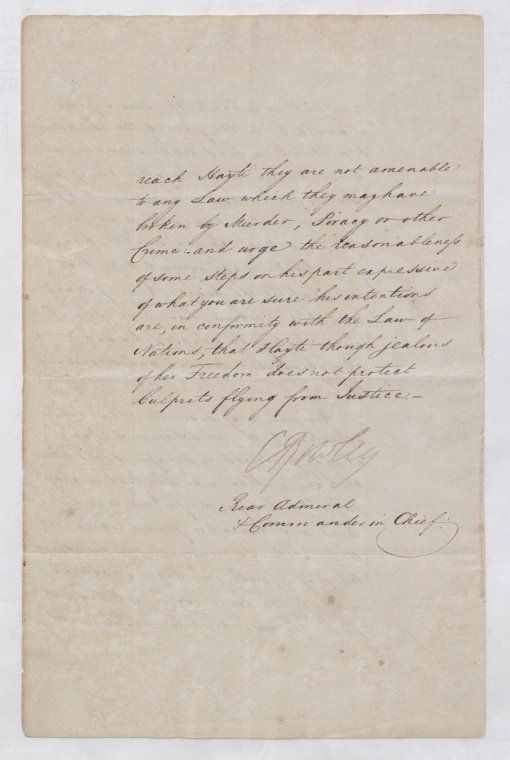 reach Hayti they are not amenable
to any Law which they may have
broken by Murder, Piracy or other
Crime - and urge the reasonableness
of some steps on his part expressive
of what you are sure his intentions
are, in conformity with the Law of
Nations, that Hayti though jealous
of her Freedom does not protect
Culprits flying from Justice. -
CRowley
Rear Admiral
& Commander in Chief.